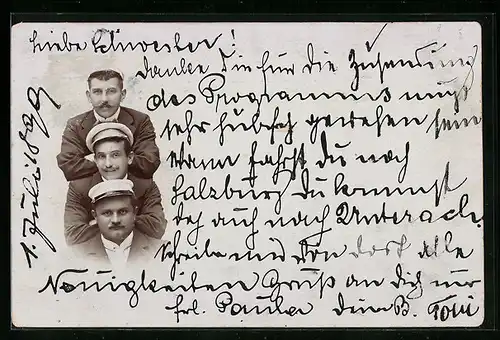 Liebe Schwester!
Danke Dir für die Zusendung
des Programms muß
sehr hübsch gewesen sein
Wann fährst du nach
Salzburg Du kommst
doch auch nach Unterach.
Schreibe mir von dort alle
Neuigkeiten Gruß an Dich und
Frl. Paula Dein B. Toni
1. Juli 1899